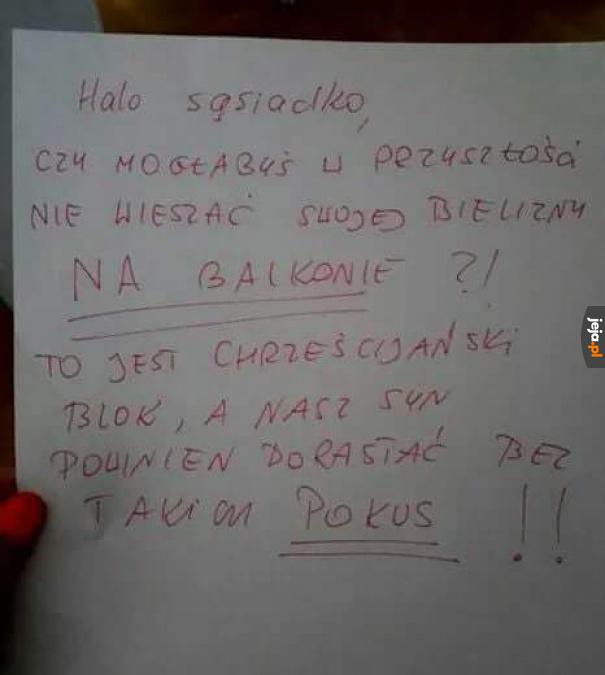 Halo sąsiadko,
CZY MOGŁABYŚ W PRZYSZŁOŚCI
NIE WIESZAĆ SWOJEJ BIELIZNY
NA BALKONIE ?!
TO JEST CHRZEŚCIJAŃSKI
BLOK, A NASZ SYN
POWINIEN DORASTAĆ BEZ
TAKICH POKUS !!
jeja.pl